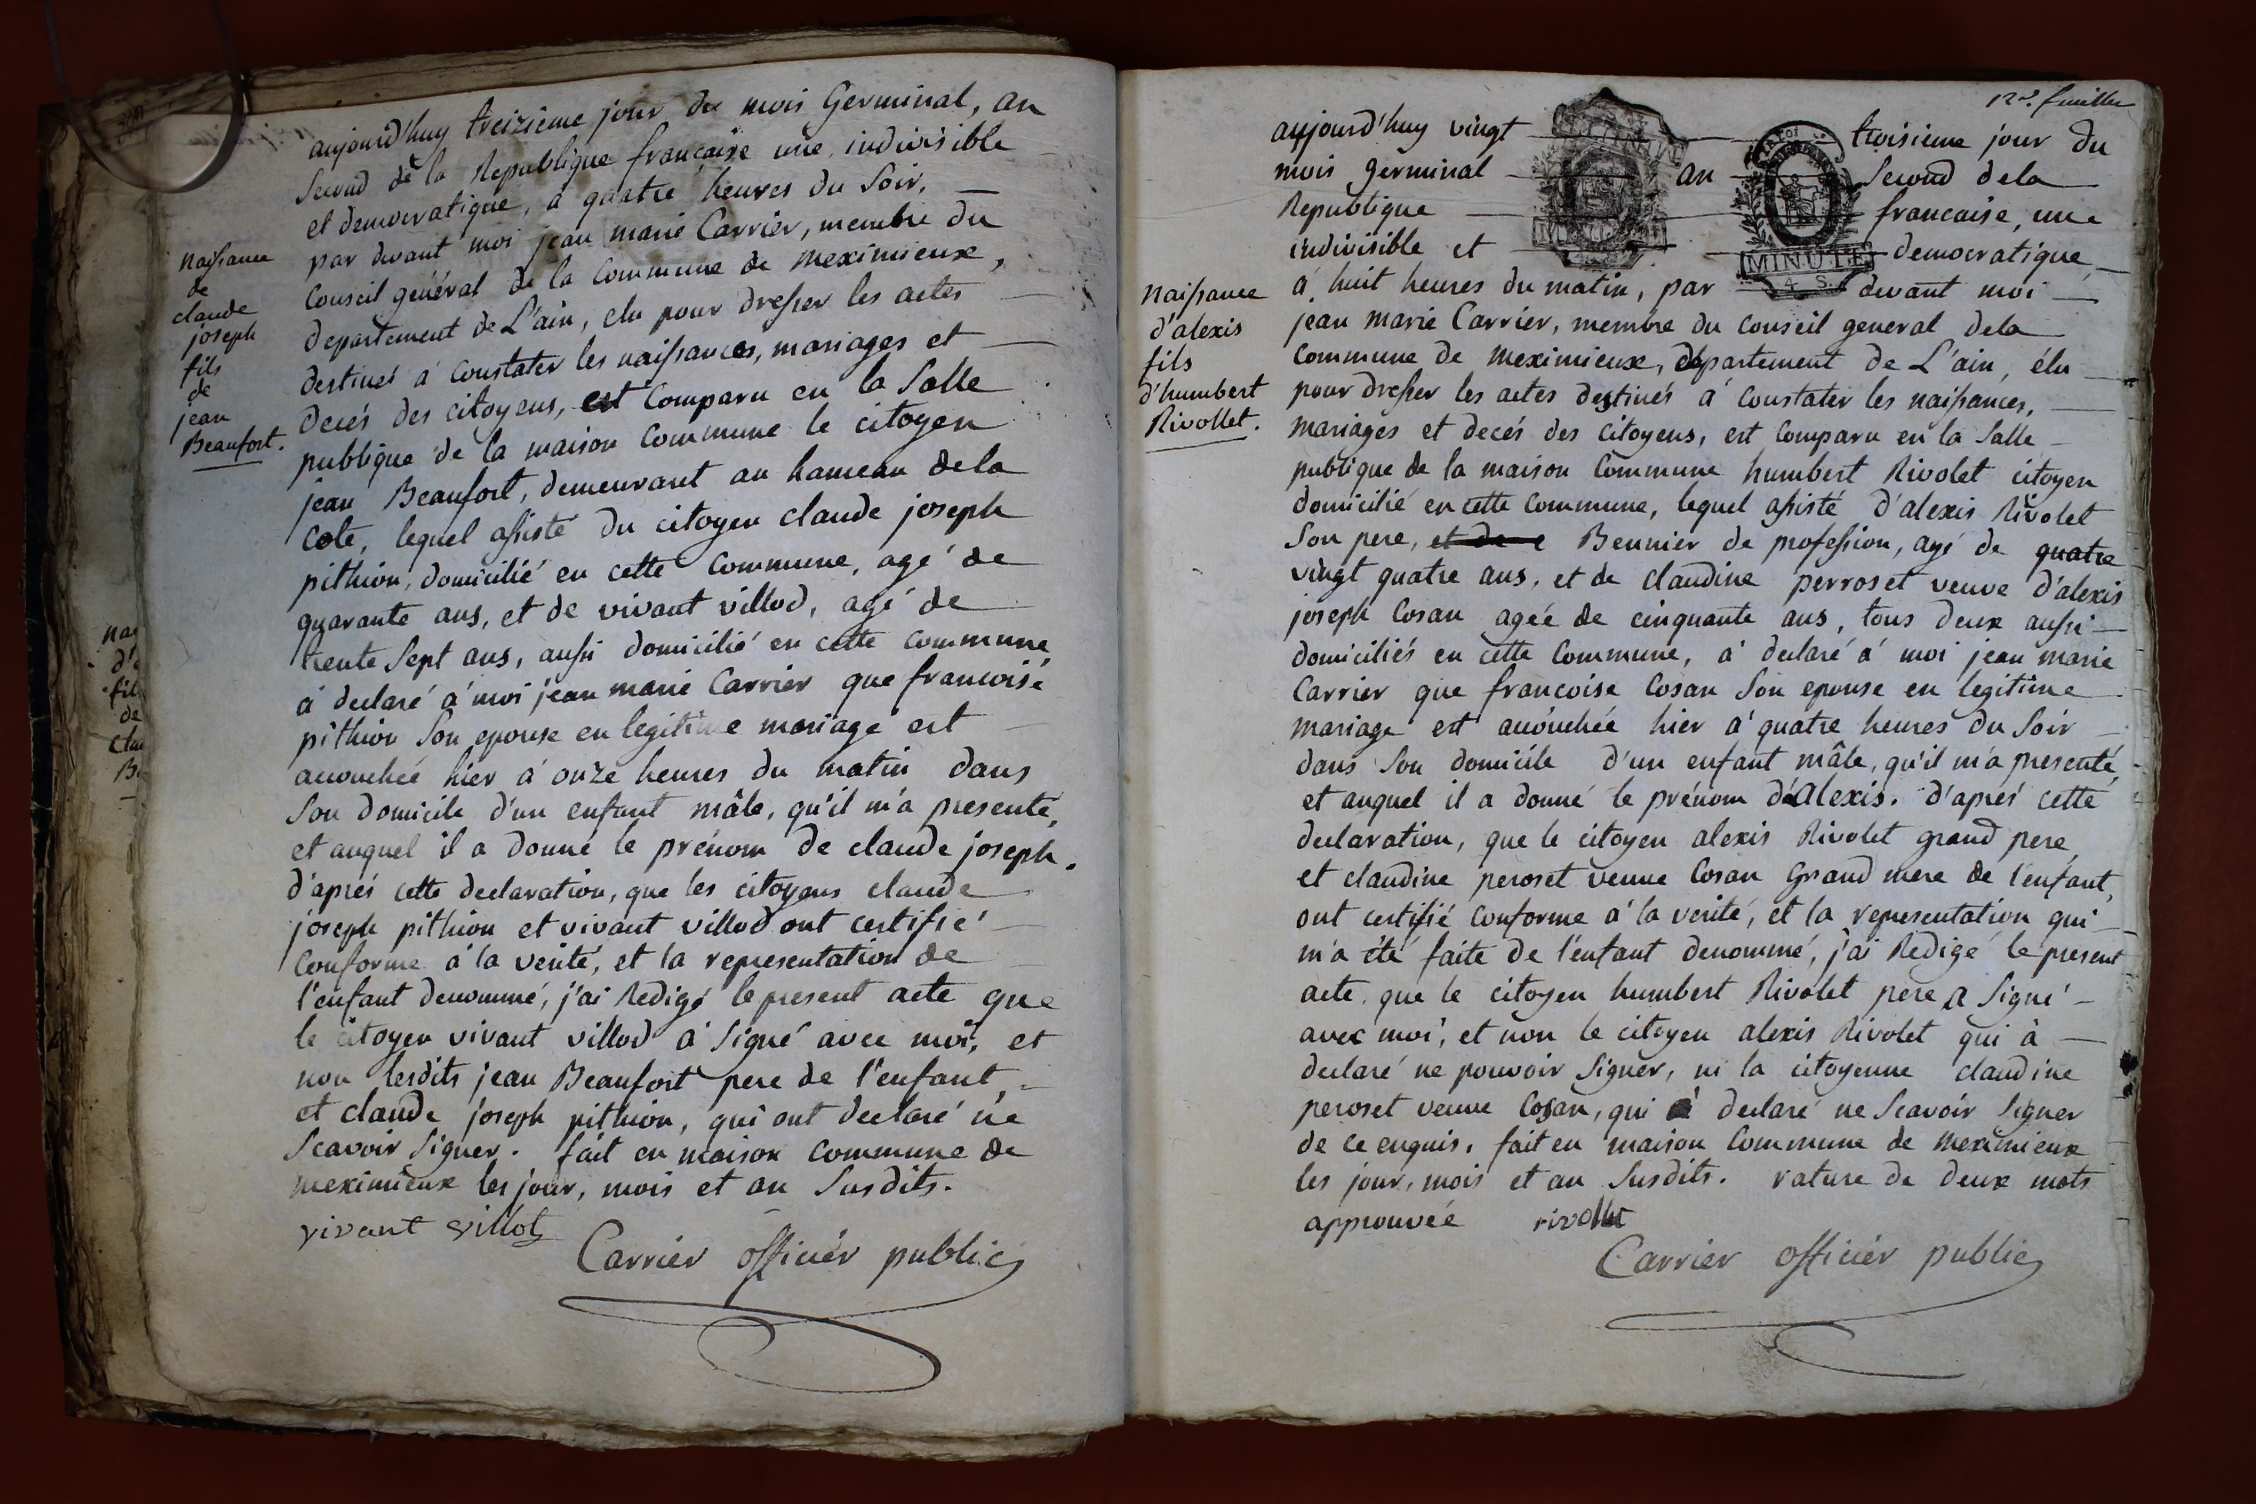 aujourd'huy treizieme jour du mois Germinal, an
Second de la Republique française une, indivisible
et democratique, à quatre heures du Soir,
par devant moi jean marie Carrier, membre du
Conseil général de la Commune de meximieux,
departement de L'ain, elu pour dresser les actes
destinés à Constater les naissances, mariages et
decés des citoyens, est Comparu en la Salle
publique de la maison Commune le citoyen
jean Beaufort, demeurant au hameau dela
Cote, lequel assisté du citoyen claude joseph
pithion, domicilié en cette Commune, agé de
quarante ans, et de vivant villod, agé de
trente Sept ans, aussi domicilié en cette commune
à declaré à moi jean marie Carrier que francoise
pithion Son epouse en legitime mariage est
accouchée hier à onze heures du matin dans
Son domicile d'un enfant mâle, qu'il m'a presenté,
et auquel il a donné le prénom de claude joseph.
d'aprés cette declaration, que les citoyens claude
joseph pithion et vivant villod ont certifié
Conforme à la verité, et la representation de
l'enfant denommé, j'ai Redigé le present acte que
le citoyen vivant villod à Signé avec moi, et
non lesdits jean Beaufort pere de l'enfant
et claude joseph pithion, qui ont declaré ne
Scavoir Signer. fait en maison Commune de
meximieux les jour, mois et an Susdits.
vivant villot
Carrier officiér public
naissance
de
claude
joseph
fils
de
jean
Beaufort.
12e. feuillet
aujourd'huy vingt troisieme jour du
mois Germinal an Second dela
Republique francaise, une
indivisible et democratique,
MINUTE
4 S
à huit heures du matin, par devant moi
jean marie Carrier, membre du Conseil general dela
Commune de meximieux, departement de L'ain, élu
pour dresser les actes destinés à Constater les naissances,
mariages et decés des citoyens, est Comparu en la Salle
publique de la maison Commune humbert Rivolet citoyen
domicilié en cette Commune, lequel assisté d'alexis Rivolet
Son pere, et de Bennier de profession, agé de quatre
vingt quatre ans, et de claudine perroset veuve d'alexis
joseph Cosan agée de cinquante ans, tous deux aussi
domiciliés en cette Commune, à declaré à moi jean marie
Carrier que francoise Cosan Son epouse en legitime
mariage est accouchée hier à quatre heures du Soir
dans Son domicile d'un enfant mâle, qu'il m'a presenté,
et auquel il a donné le prénom d'Alexis. d'aprés cette
declaration, que le citoyen alexis Rivolet grand pere
et claudine peroset veuve Cosan Grand mere de l'enfant,
ont certifié Conforme à la verité, et la representation qui
m'a été faite de l'enfant denommé, j'ai Redigé le present
acte que le citoyen humbert Rivolet pere a Signé
avec moi, et non le citoyen alexis Rivolet qui à
declaré ne pouvoir Signer, ni la citoyenne claudine
peroset veuve Cosan, qui à declaré ne Scavoir Signer
de ce enquis. fait en maison Commune de meximieux
les jour, mois et an Susdits. rature de deux mots
approuvée rivollet
Carrier officiér public
naissance
d'alexis
fils
d'humbert
Rivollet.